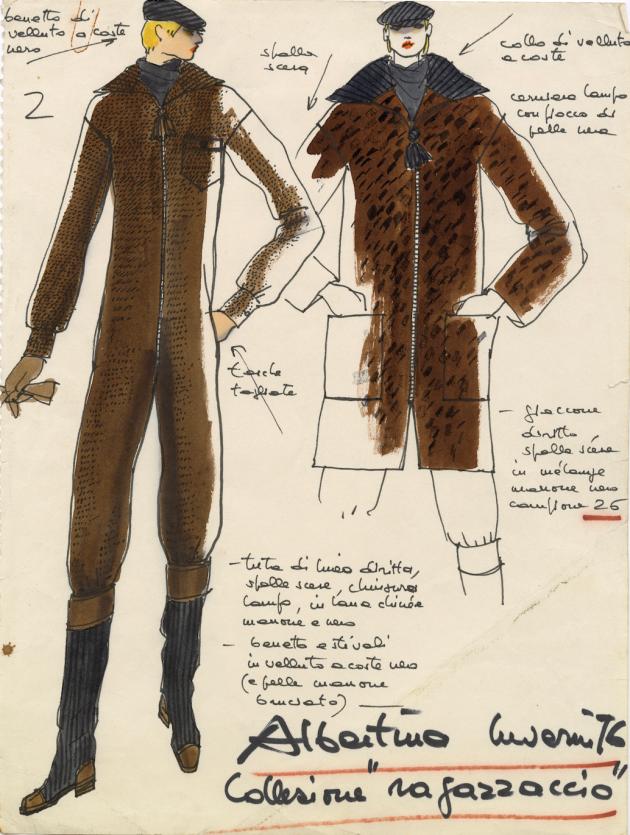 berretto di
velluto a coste
nero
2
spalla
scesa
collo di velluto
a coste
cerniera lampo
con fiocco di
pelle nera
tasche
tagliate
- giaccone
diritto
spalle scese
in mélange
marrone nero
campione 26
- tuta di linea diritta,
spalle scese, chiusura
lampo, in lana chinée
marrone e nero
- berretto e stivali
in velluto a coste nero
(e pelle marrone
bruciato)
Albertina Inverni 76
Collezione "ragazzaccio"